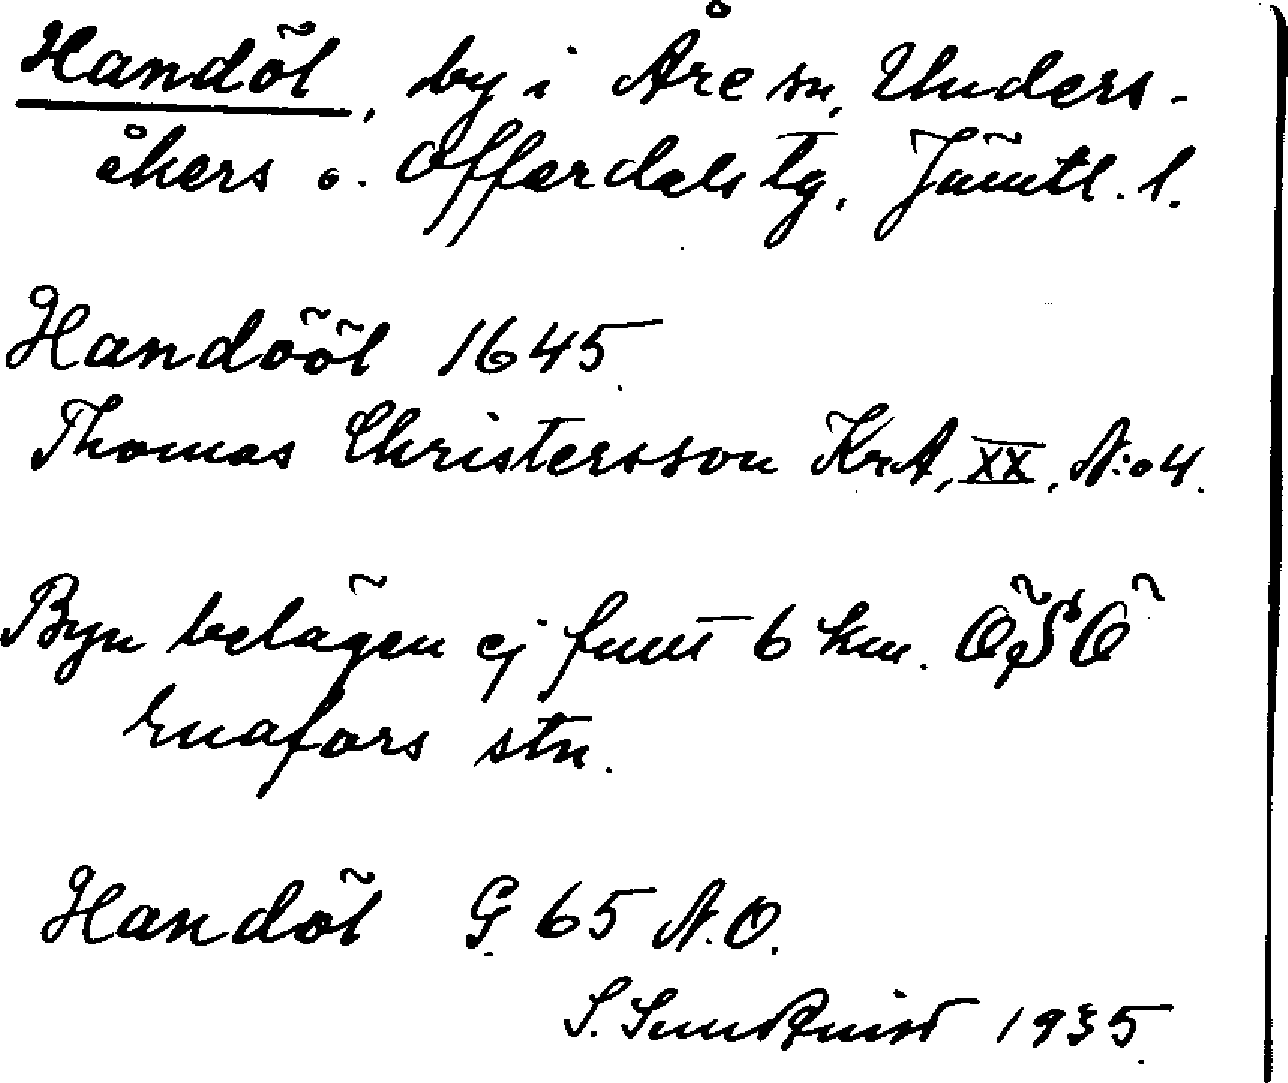 Handöl, by i Åre sn, Unders-
åkers o. Offerdals tg, Jämtl. l.
Handööl 1645
Thomas Christersson KrA, XX, N:o 4.
Byn belägen ej fullt 6 km. ÖSÖ
Enafors stn.
Handöl G 65 N.O.
S. Sundkvist 1935